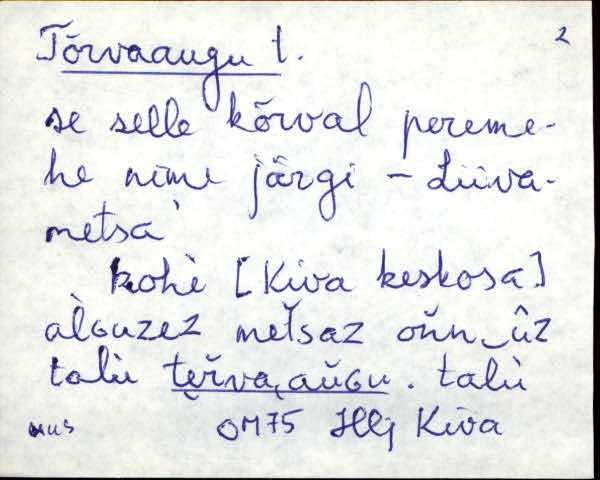 Tõrvaaugu t. 2
se selle kõrval pereme-
he nime järgi – Liiva-
metsa
kohè [Kiva keskosa]
àlɢuzez meťsaz oňn‿ûz
talù tẹřva,aŭɢu. talù
mus OM75 Hlj Kiva